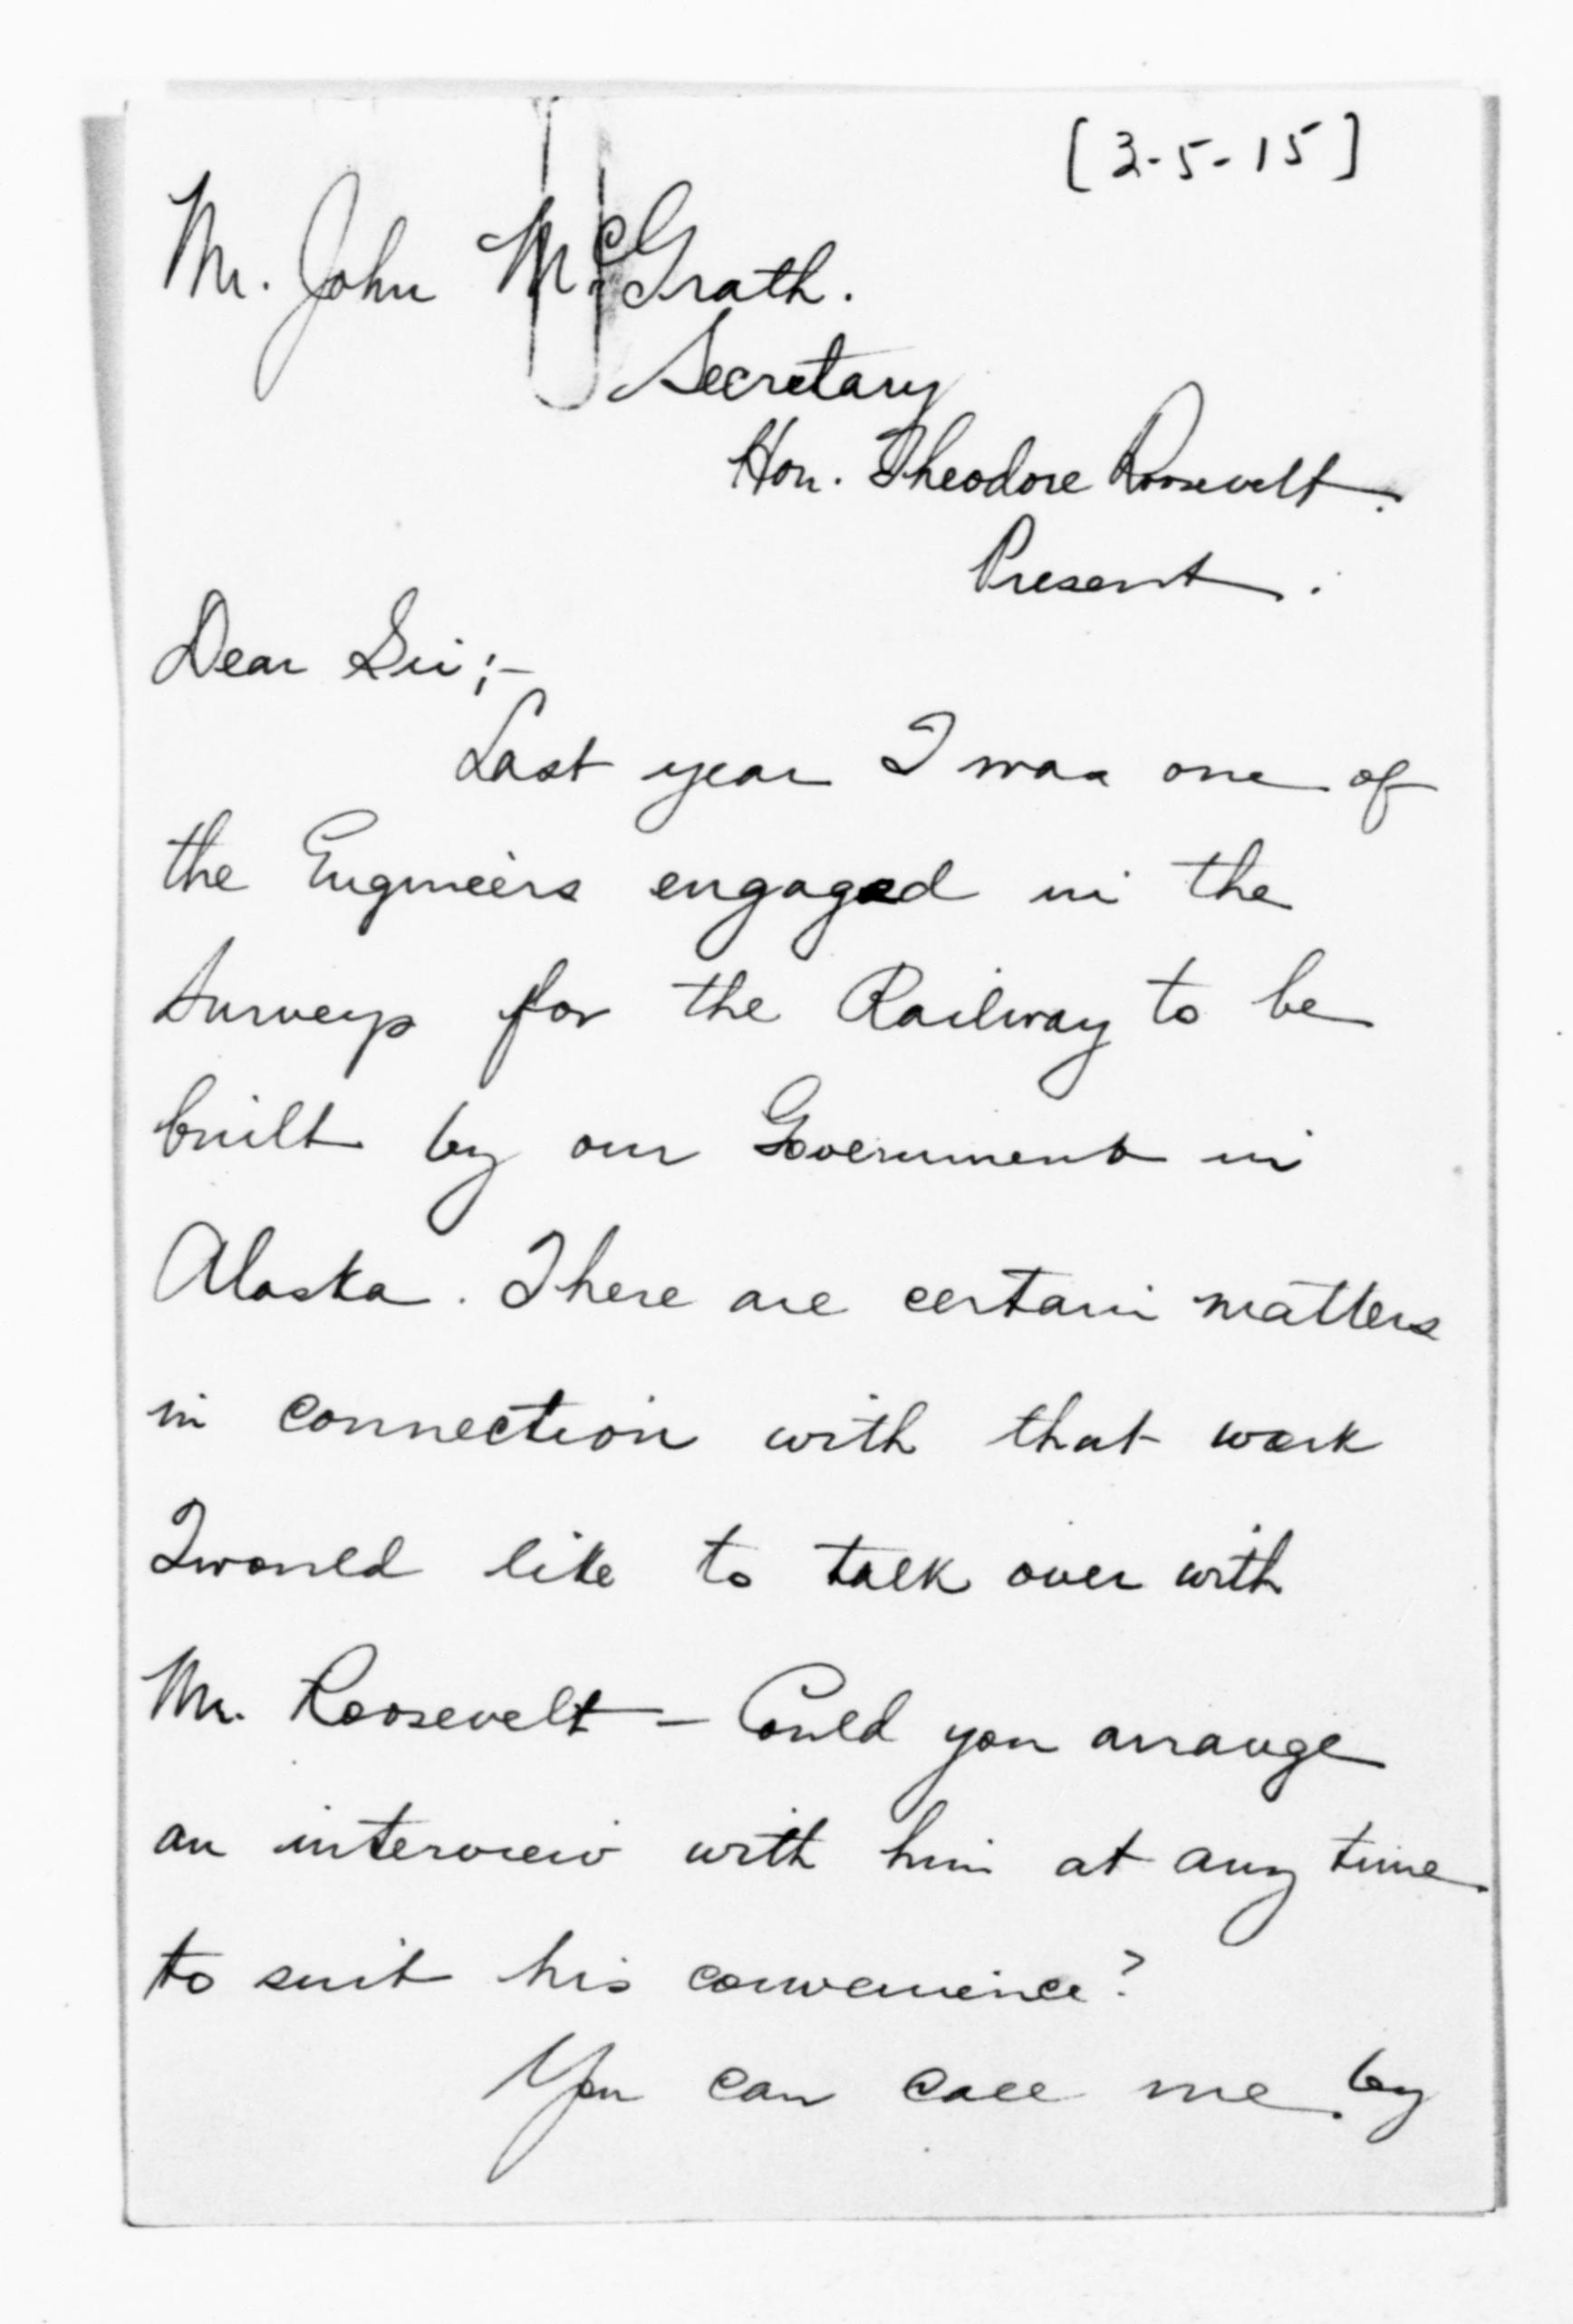 [3-5-15]
Mr. John McGrath.
Secretary
Hon. Theodore Roosevelt.
Present.
Dear Sir;-
Last year I was one of
the Engineers engaged in the
surveys for the Railway to be
built by our Government in
Alaska. There are certain matters
in connection with that work
I would like to talk over with
Mr. Roosevelt - Could you arrange
an interview with him at any time
to suit his convenience?
You can call me by